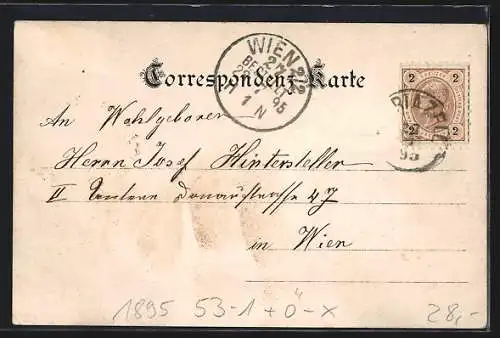 Correspondenz-Karte
WIEN 2/2
BESTELLT
95
1 N
2 2
2 2
95
An Wohlgeboren
Herrn Josef Hintersteller
II Untere Donaustrasse 47
in Wien
1895 53-1+0-x 28,-